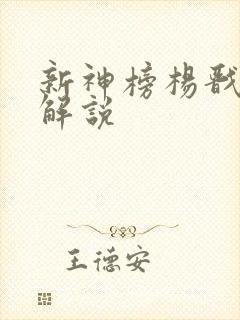 新神榜楊戩
解説
王德安